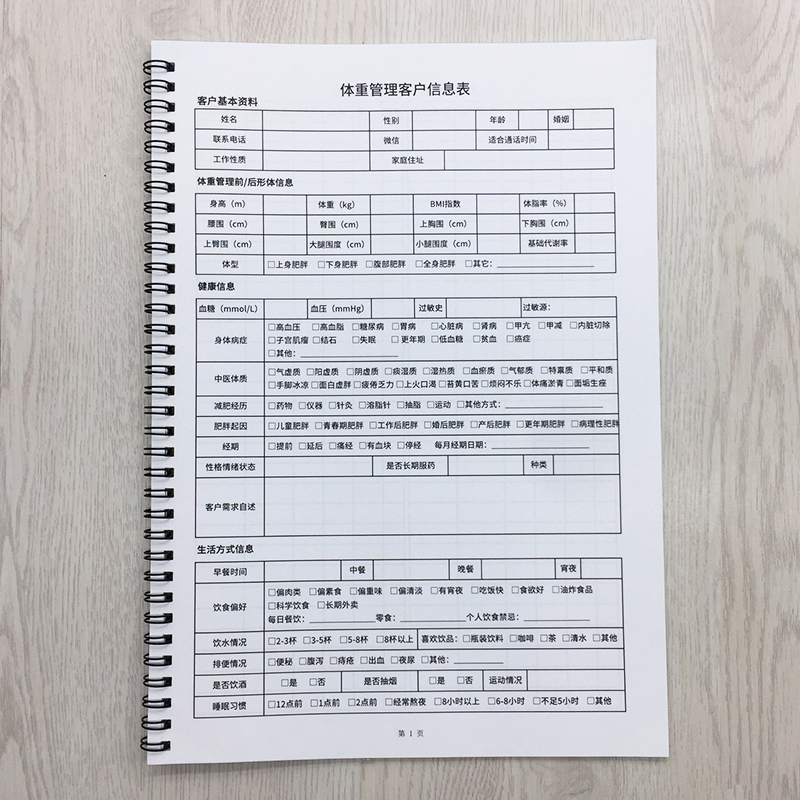 体重管理客户信息表
客户基本资料
姓名 性别 年龄 婚姻
联系电话 微信 适合通话时间
工作性质 家庭住址
体重管理前/后形体信息
身高（m） 体重（kg） BMI指数 体脂率（%）
腰围（cm） 臀围（cm） 上胸围（cm） 下胸围（cm）
上臂围（cm） 大腿围度（cm） 小腿围度（cm） 基础代谢率
体型 □上身肥胖 □下身肥胖 □腹部肥胖 □全身肥胖 □其它：
健康信息
血糖（mmol/L） 血压（mmHg） 过敏史 过敏源：
身体病症 □高血压 □高血脂 □糖尿病 □胃病 □心脏病 □肾病 □甲亢 □甲减 □内脏切除
□子宫肌瘤 □结石 □失眠 □更年期 □低血糖 □贫血 □癌症
□其他：
中医体质 □气虚质 □阳虚质 □阴虚质 □痰湿质 □湿热质 □血瘀质 □气郁质 □特禀质 □平和质
□手脚冰凉 □面白虚胖 □疲倦乏力 □上火口渴 □苔黄口苦 □烦闷不乐 □体痛淤青 □面垢生座
减肥经历 □药物 □仪器 □针灸 □溶脂针 □抽脂 □运动 □其他方式：
肥胖起因 □儿童肥胖 □青春期肥胖 □工作后肥胖 □婚后肥胖 □产后肥胖 □更年期肥胖 □病理性肥胖
经期 □提前 □延后 □痛经 □有血块 □停经 每月经期日期：
性格情绪状态 是否长期服药 种类
客户需求自述
生活方式信息
早餐时间 中餐 晚餐 宵夜
饮食偏好 □偏肉类 □偏素食 □偏重味 □偏清淡 □有宵夜 □吃饭快 □食欲好 □油炸食品
□科学饮食 □长期外卖
每日餐饮： 零食： 个人饮食禁忌：
饮水情况 □2-3杯 □3-5杯 □5-8杯 □8杯以上 喜欢饮品：□瓶装饮料 □咖啡 □茶 □清水 □其他
排便情况 □便秘 □腹泻 □痔疮 □出血 □夜尿 □其他：
是否饮酒 □是 □否 是否抽烟 □是 □否 运动情况
睡眠习惯 □12点前 □1点前 □2点前 □经常熬夜 □8小时以上 □6-8小时 □不足5小时 □其他
第 1 页